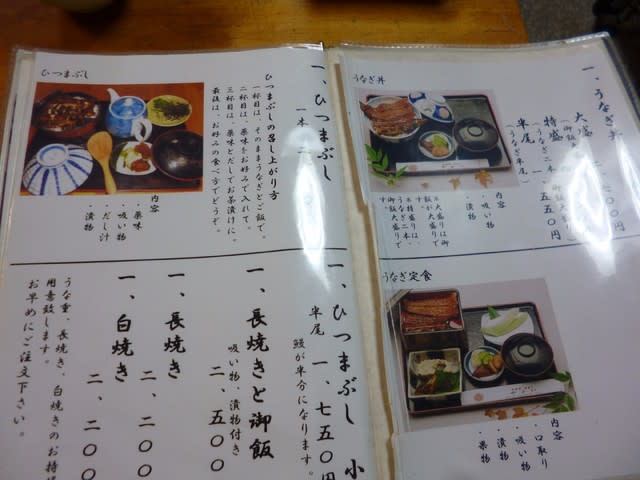 一、うなぎ丼
大盛
特盛
うなぎ二本
一、五五〇円
半尾
(うなぎ半尾)
うなぎ丼
内容
・吸い物
・漬物
※大盛りは御飯が大盛りです。
うなぎ定食
内容
・口取り
・吸い物
・漬物
・果物
一、ひつまぶし
一本
ひつまぶしの召し上がり方
一杯目は、そのままうなぎとご飯で。
二杯目は、薬味をお好みで入れて。
三杯目は、薬味とだしでお茶漬けに。
最後は、お好みの食べ方でどうぞ。
ひつまぶし
内容
・薬味
・吸い物
・だし汁
・漬物
一、ひつまぶし 小
半尾 一、七五〇円
鰻が半分になります。
一、長焼きと御飯
吸い物、漬物付き
二、五〇〇
一、長焼き
二、二〇〇
一、白焼き
二、二〇〇
うな重、長焼き、白焼きのお持
用意致します。
お早めにご注文下さい。